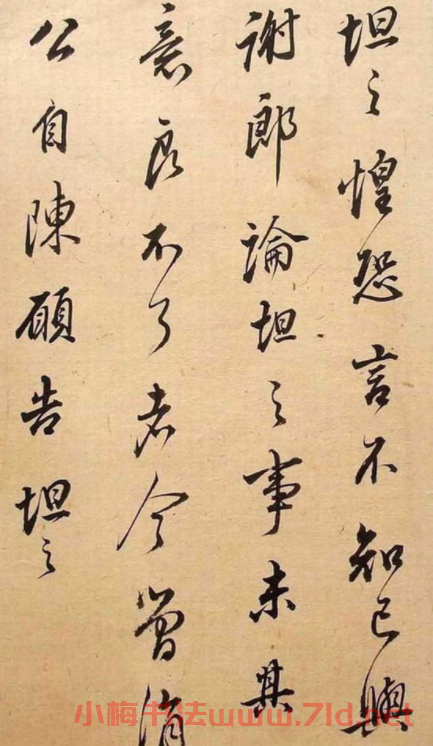 坦之惶恐言不知已與
謝郎論坦之事未其
意良不了者今曾消
公自陳頋告坦之
小梅书法www.7ld.net